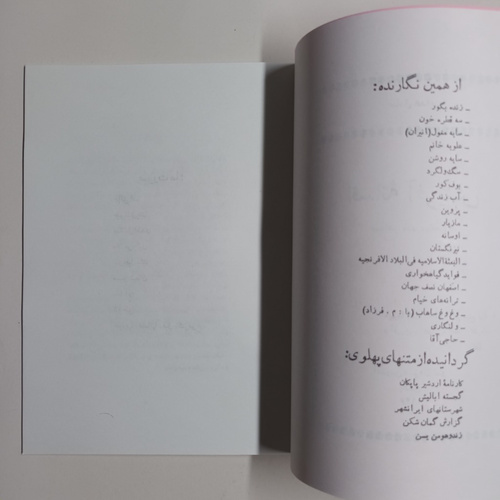 از همین نگارنده:
ـ زنده بگور
ـ سه قطره خون
ـ سایه مغول (انیران)
ـ علویه خانم
ـ سایه روشن
ـ سگ ولگرد
ـ بوف کور
ـ آب زندگی
ـ پروین
ـ مازیار
ـ اوسانه
ـ نیرنگستان
ـ البعثة الاسلامیه فی البلاد الافرنجیه
ـ فواید گیاهخواری
ـ اصفهان نصف جهان
ـ ترانه‌های خیام
ـ وغ وغ ساهاب (با : م . فرزاد)
ـ ولنگاری
ـ حاجی آقا
گردانیده از متنهای پهلوی:
کارنامهٔ اردشیر پاپکان
گجسته ابالیش
شهرستانهای ایرانشهر
گزارش گمان شکن
زند وهومن یسن